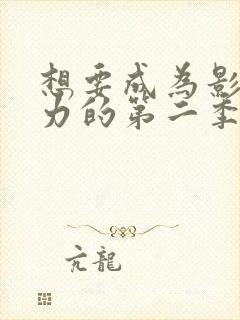 想要成为影
力的第二季
亢龍